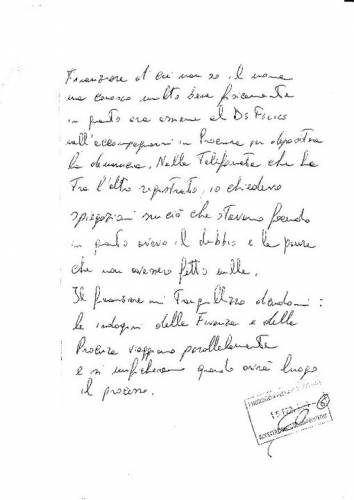 Finanziere di cui non so il nome
ma conosco molto bene fisicamente
in quanto era assieme al Ds
nell'accompagnarmi in Procura per depositare
la denuncia. Nella Telefonata che ho
Tra l'altro registrato, io chiedevo
spiegazioni su ciò che stavano facendo
in quanto avevo il dubbio e la paura
che non avessero fatto nulla.
Il finanziere mi Tranquillizza dicendomi:
le indagini della Finanza e della
Procura viaggiano parallelamente
e si unificheranno quando avrà luogo
il processo.
6